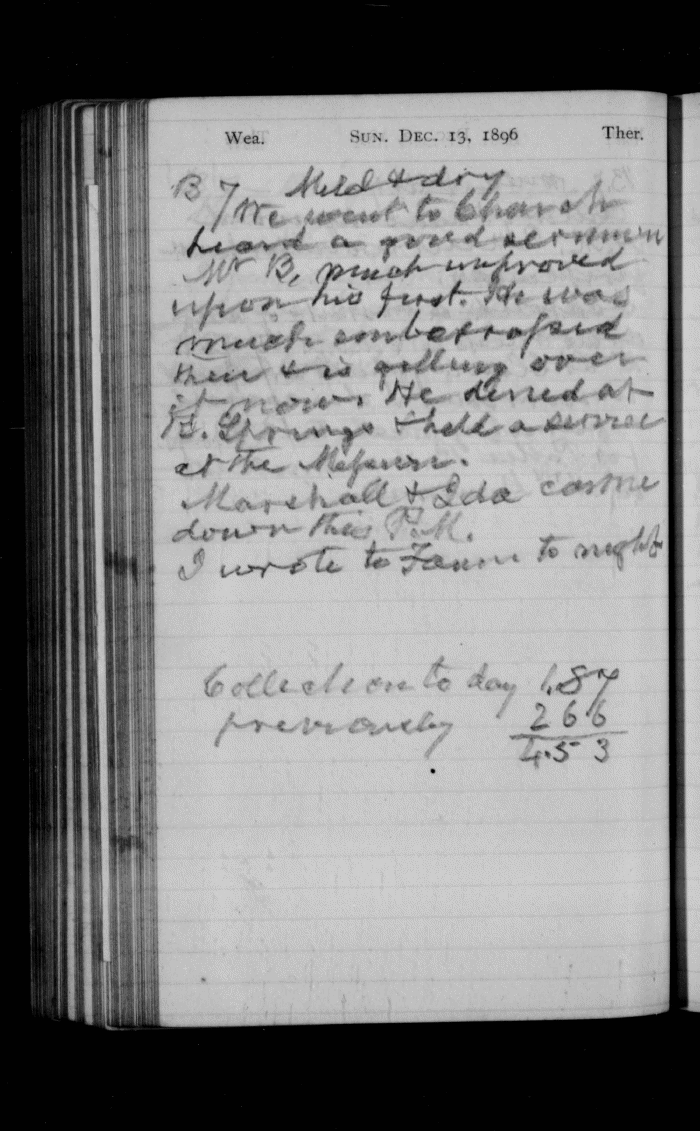 Wea. SUN. DEC. 13, 1896 Ther.
B 7 Mild & dry
We went to Church
heard a good sermon
Mr B, much improved
upon his first. He was
much embarrassed
then & is getting over
it now. He dined at
B. Springs & held a service
at the
Marshall & Ida came
down this P.M.
I wrote to Fannie to night
Collection to day 1.87
previously 2 66
4.53